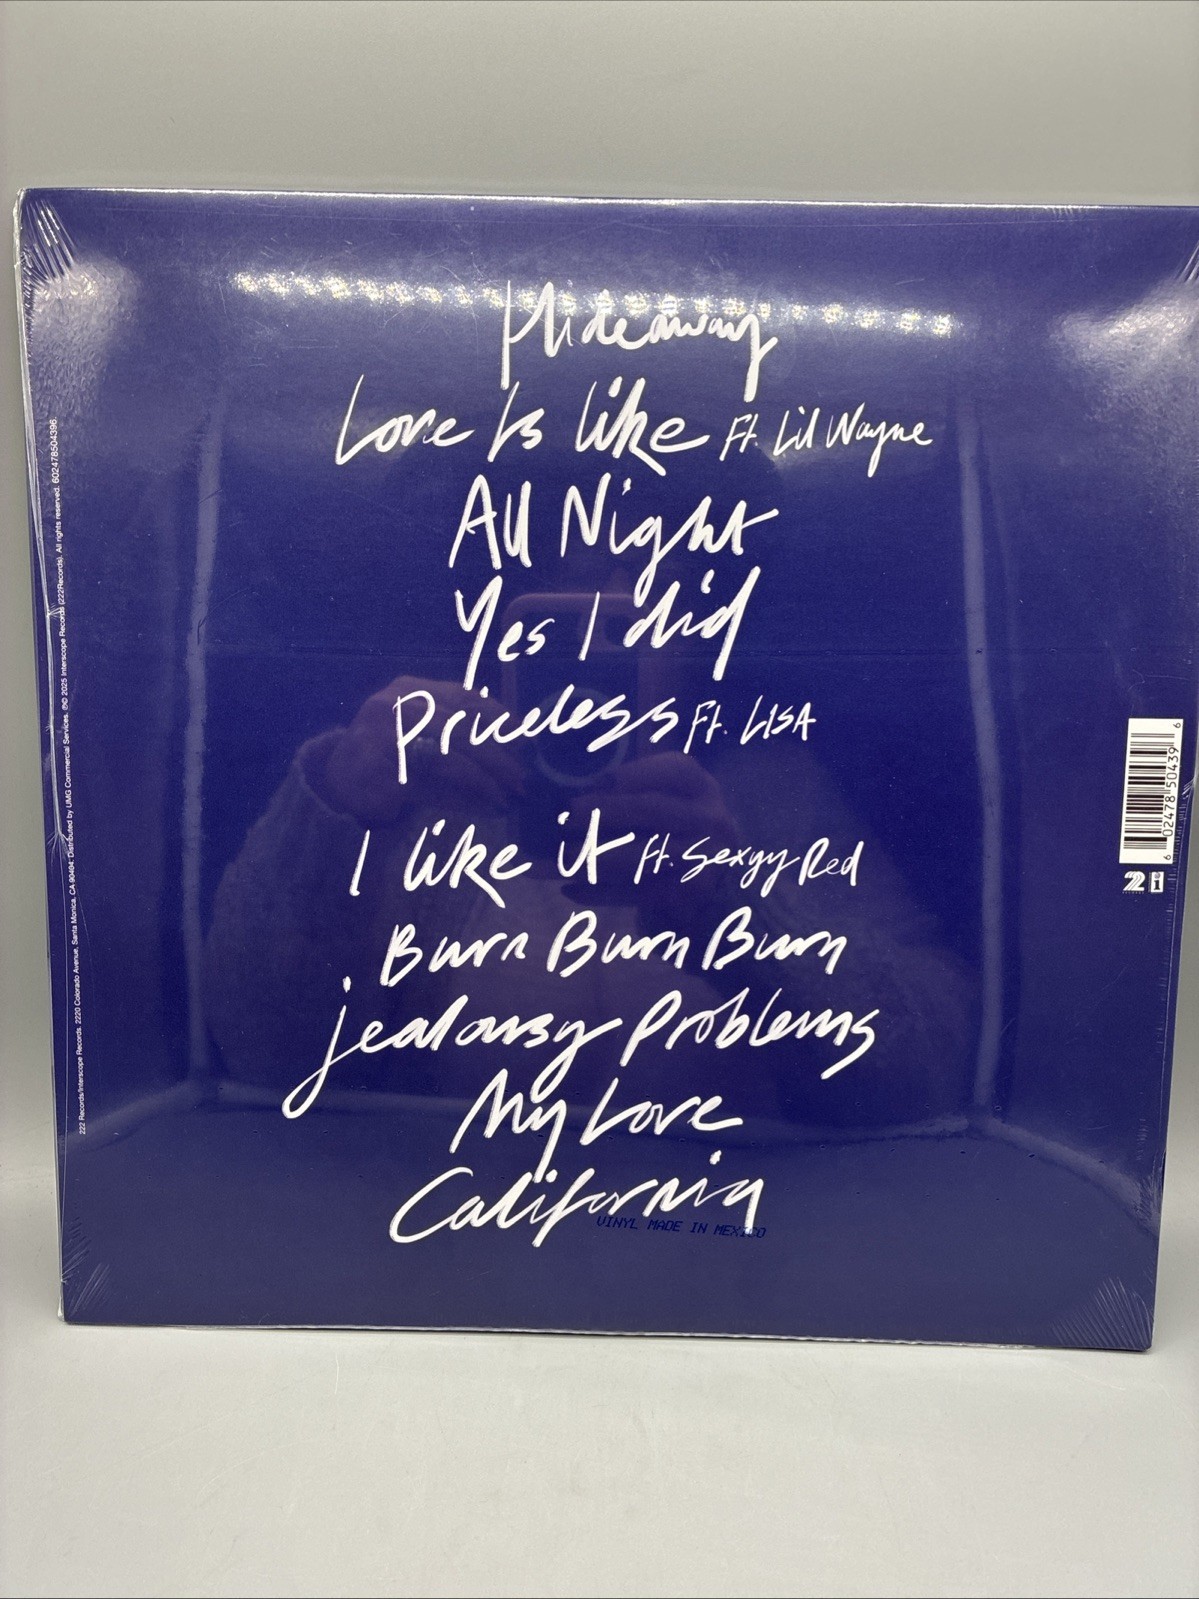 Hideaway
Love Is like Ft. Lil Wayne
All Night
Yes I did
Priceless Ft. LISA
I like it ft. Sexyy Red
Burn Burn Burn
jealousy Problems
My Love
California
VINYL MADE IN MEXICO
222 Records/Interscope Records. 2220 Colorado Avenue, Santa Monica, CA 90404. Distributed by UMG Commercial Services. ℗© 2025 Interscope Records (222Records). All rights reserved. 602478504396.
6 02478 50439 6
222
i